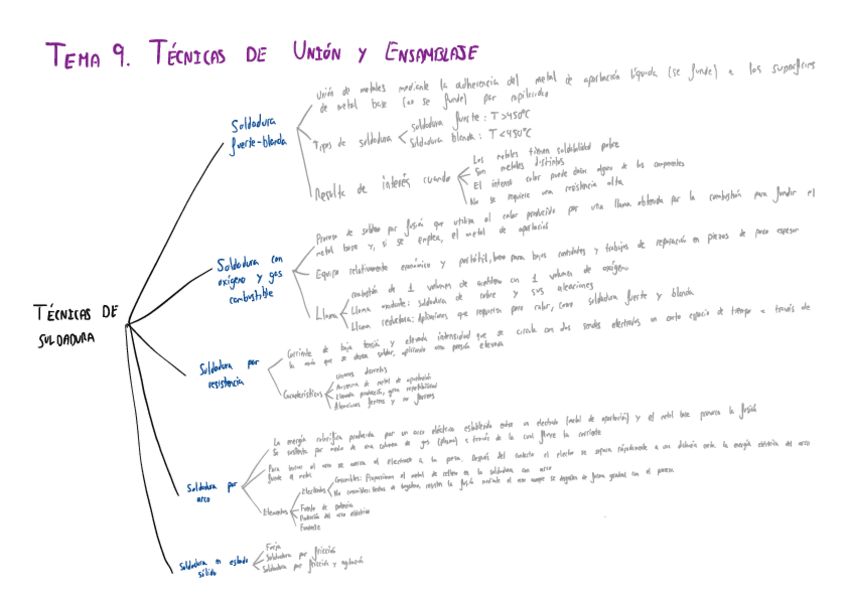 TEMA 9. TÉCNICAS DE UNIÓN Y ENSAMBLAJE
TÉCNICAS DE
SOLDADURA
Soldadura
fuerte-blanda
Unión de metales mediante la adherencia del metal de aportación líquida (se funde) a las superficies
de metal base (no se funde) por capilaridad
Tipos de soldadura
Soldadura fuerte: T>450°C
Soldadura blanda: T<450°C
Resulta de interés cuando
Los metales tienen soldabilidad pobre
Son metales distintos
El intenso calor puede dañar alguno de los componentes
No se requiere una resistencia alta
Soldadura con
oxígeno y gas
combustible
Proceso de soldeo por fusión que utiliza el calor producido por una llama obtenida por la combustión para fundir el
metal base y, si se emplea, el metal de aportación
Equipo relativamente económico y portátil, bueno para bajas cantidades y trabajos de reparación en piezas de poco espesor
Llama
combustión de 1 volumen de acetileno con 1 volumen de oxígeno
Llama oxidante: soldadura de cobre y sus aleaciones
Llama reductora: Aplicaciones que requieran poco calor, como soldadura fuerte y blanda
Soldadura por
resistencia
Corriente de baja tensión y elevada intensidad que se circula con dos sendos electrodos un corto espacio de tiempo a través de
la unión que se desea soldar, aplicando una presión elevada
Características
Uniones discretas
Ausencia de metal de aportación
Elevada producción, gran repetibilidad
Aleaciones férreas y no férreas
Soldadura por
arco
La energía calorífica producida por un arco eléctrico establecido entre un electrodo (metal de aportación) y el metal base provoca la fusión
Se sustenta por medio de una columna de gas (plasma) a través de la cual fluye la corriente
Para iniciar el arco se acerca el electrodo a la pieza. Después del contacto el electrodo se separa rápidamente a una distancia corta. La energía eléctrica del arco
funde el metal
Elementos
Electrodos
Consumibles: Proporcionan el metal de relleno en la soldadura con arco
No consumibles: hechos de tungsteno, resisten la fusión mediante el arco aunque se degradan de forma gradual con el proceso
Fuente de potencia
Protección del arco eléctrico
Fundente
Soldadura en estado
sólido
Forja
Soldadura por fricción
Soldadura por fricción y agitación